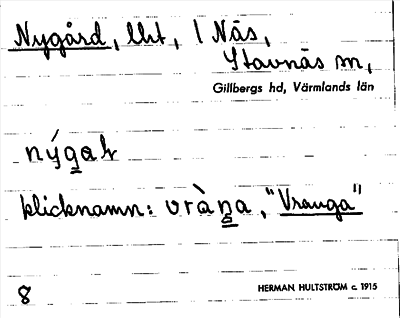 Nygård, lht, 1 Näs,
Stavnäs m,
Gillbergs hd, Värmlands län
klicknamn: "Vranga"
8
HERMAN HULTSTRÖM c. 1915